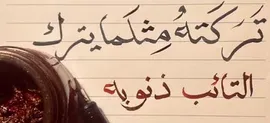 تَرَكتَهُ مِثلَمَا يترك
التائب ذنوبه